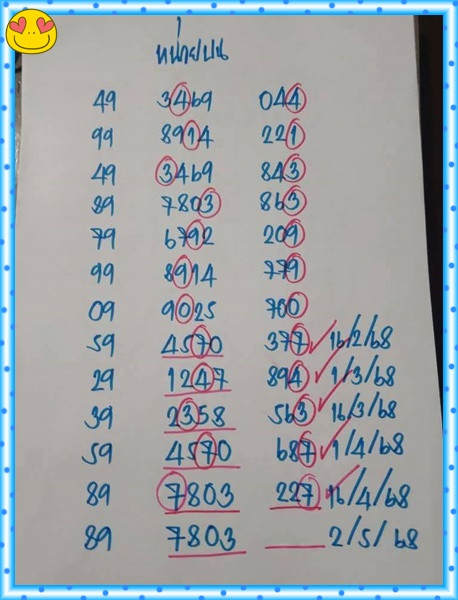 หน่วยบน
49 3469 044
99 8914 221
49 3469 843
89 7803 863
79 6792 209
99 8914 779
09 9025 700
59 4570 377 16/2/68
29 1247 894 1/3/68
39 2358 563 16/3/68
59 4570 687 1/4/68
89 7803 227 16/4/68
89 7803 ___ 2/5/68